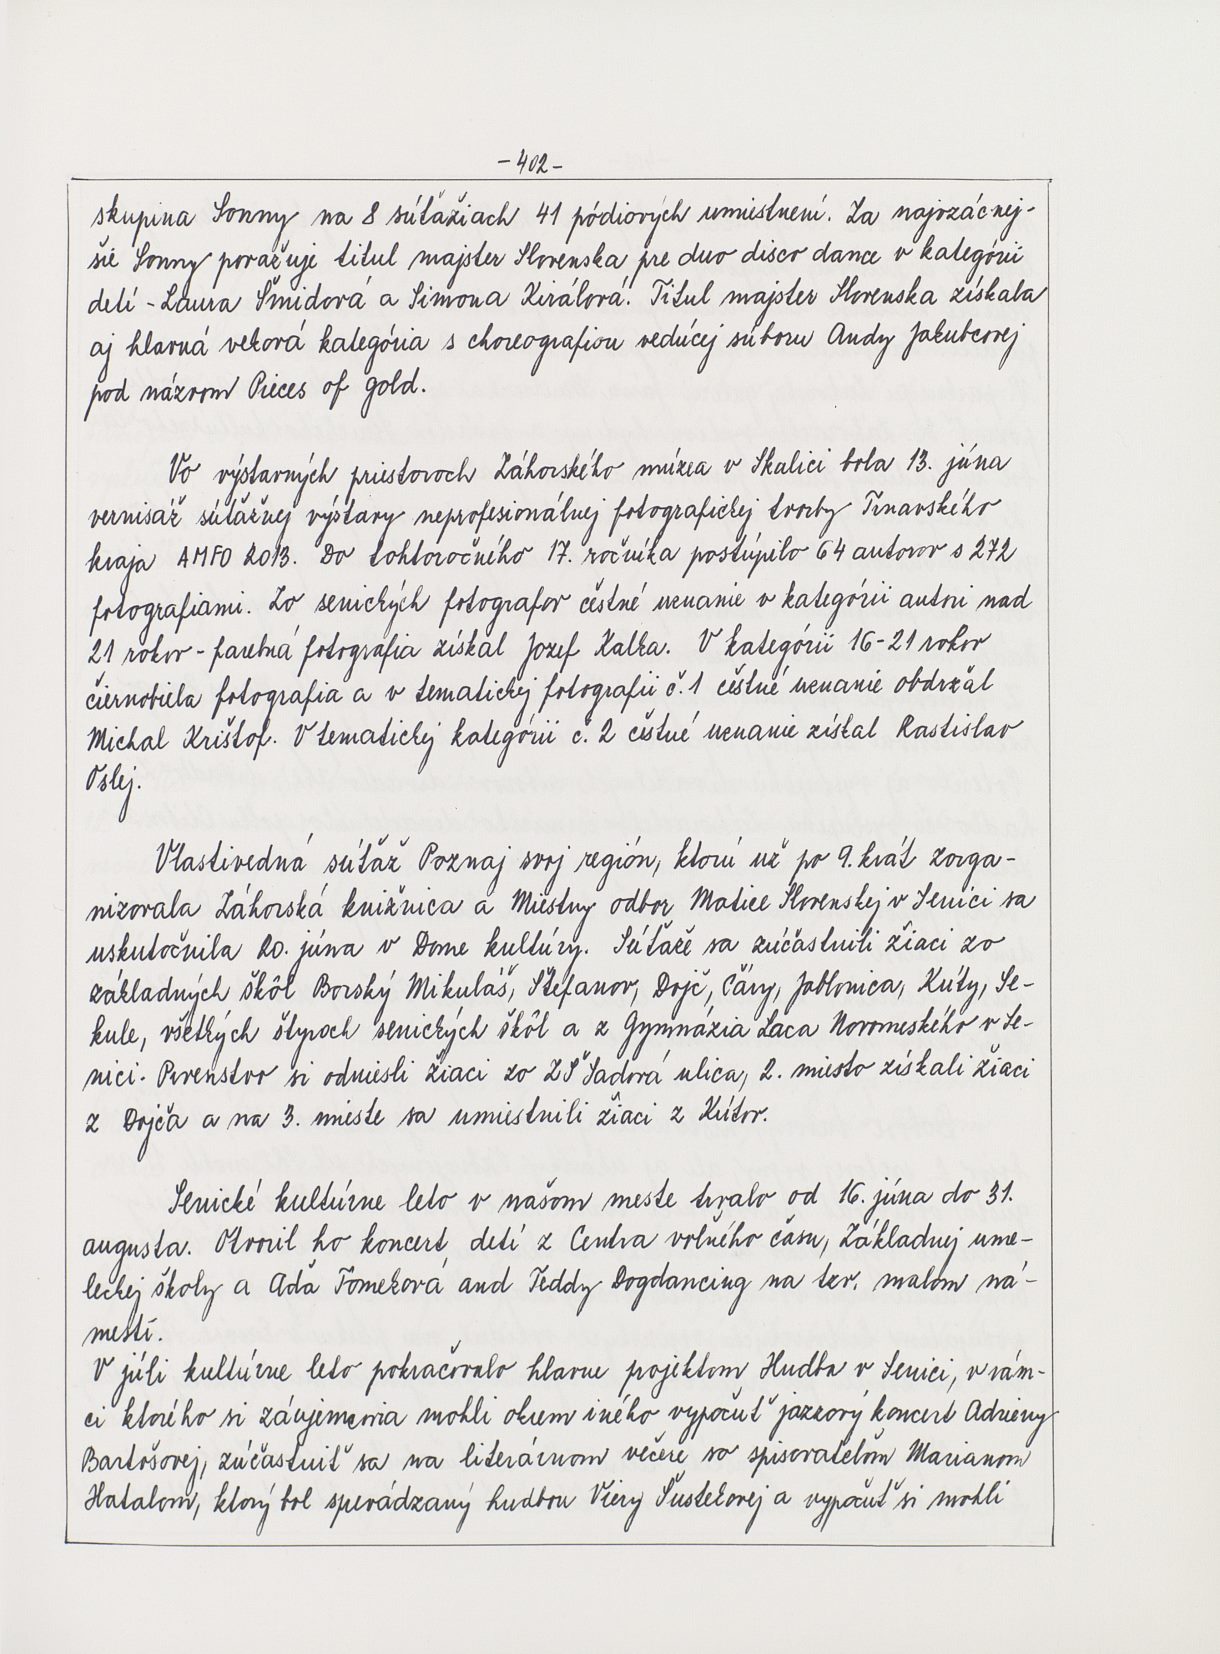 - 402 -
skupina Sonny na 8 súťažiach 41 pódiových umiestnení. Za najvzácnej-
šie Sonny považuje titul majster Slovenska pre duo disco dance v kategórii
detí - Laura Šmidová a Simona Királová. Titul majster Slovenska získala
aj hlavná veková kategória s choreografiou vedúcej súboru Andy Jakubcovej
pod názvom Pieces of gold.
Vo výstavných priestoroch Záhorského múzea v Skalici bola 13. júna
vernisáž súťažnej výstavy neprofesionálnej fotografickej tvorby Trnavského
kraja AMFO 2013. Do tohtoročného 17. ročníka postúpilo 64 autorov s 272
fotografiami. Zo senických fotografov čestné uznanie v kategórii autori nad
21 rokov - farebná fotografia získal Jozef Kalka. V kategórii 16-21 rokov
čiernobiela fotografia a v tematickej fotografii č.1 čestné uznanie obdržal
Michal Krištof. V tematickej kategórii č. 2 čestné uznanie získal Rastislav
Oslej.
Vlastivedná súťaž Poznaj svoj región, ktorú už po 9. krát zorga-
nizovala Záhorská knižnica a Miestny odbor Matice Slovenskej v Senici sa
uskutočnila 20. júna v Dome kultúry. Súťaže sa zúčastnili žiaci zo
základných škôl Borský Mikuláš, Štefanov, Dojč, Čáry, Jablonica, Kúty, Se-
kule, všetkých štyroch senických škôl a z Gymnázia Laca Novomeského v Se-
nici. Prvenstvo si odniesli žiaci zo ZŠ Sadová ulica, 2. miesto získali žiaci
z Dojča a na 3. mieste sa umiestnili žiaci z Kútov.
Senické kultúrne leto v našom meste trvalo od 16. júna do 31.
augusta. Otvoril ho koncert detí z Centra voľného času, Základnej ume-
leckej školy a Aďa Tomeková and Teddy Dogdancing na tzv. malom ná-
mestí.
V júli kultúrne leto pokračovalo hlavne projektom Hudba v Senici, v rám-
ci ktorého si záujemcovia mohli okrem iného vypočuť jazzový koncert Adrieny
Bartošovej, zúčastniť sa na literárnom večere so spisovateľom Marianom
Hatalom, ktorý bol sprevádzaný hudbou Viery Šustekovej a vypočuť si mohli